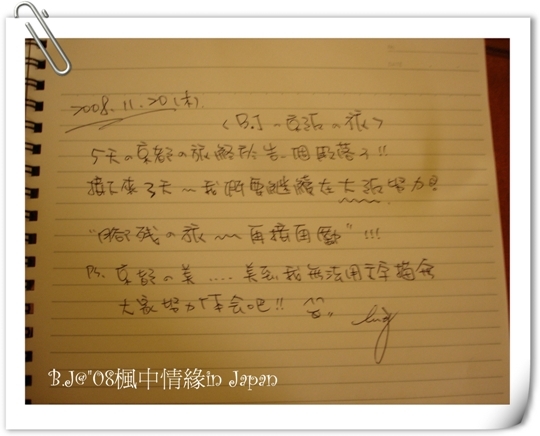 2008.11.20(木).
<B.J~京阪の旅>
5天の京都の旅終於告一個段落了!!
接下來3天~我們要繼續在大阪努力
"殘の旅~~再接再勵"!!!
PS. 京都の美....美到我無法用文字描無
大家努力体会吧!!
B.J@"08楓中情緣in Japan